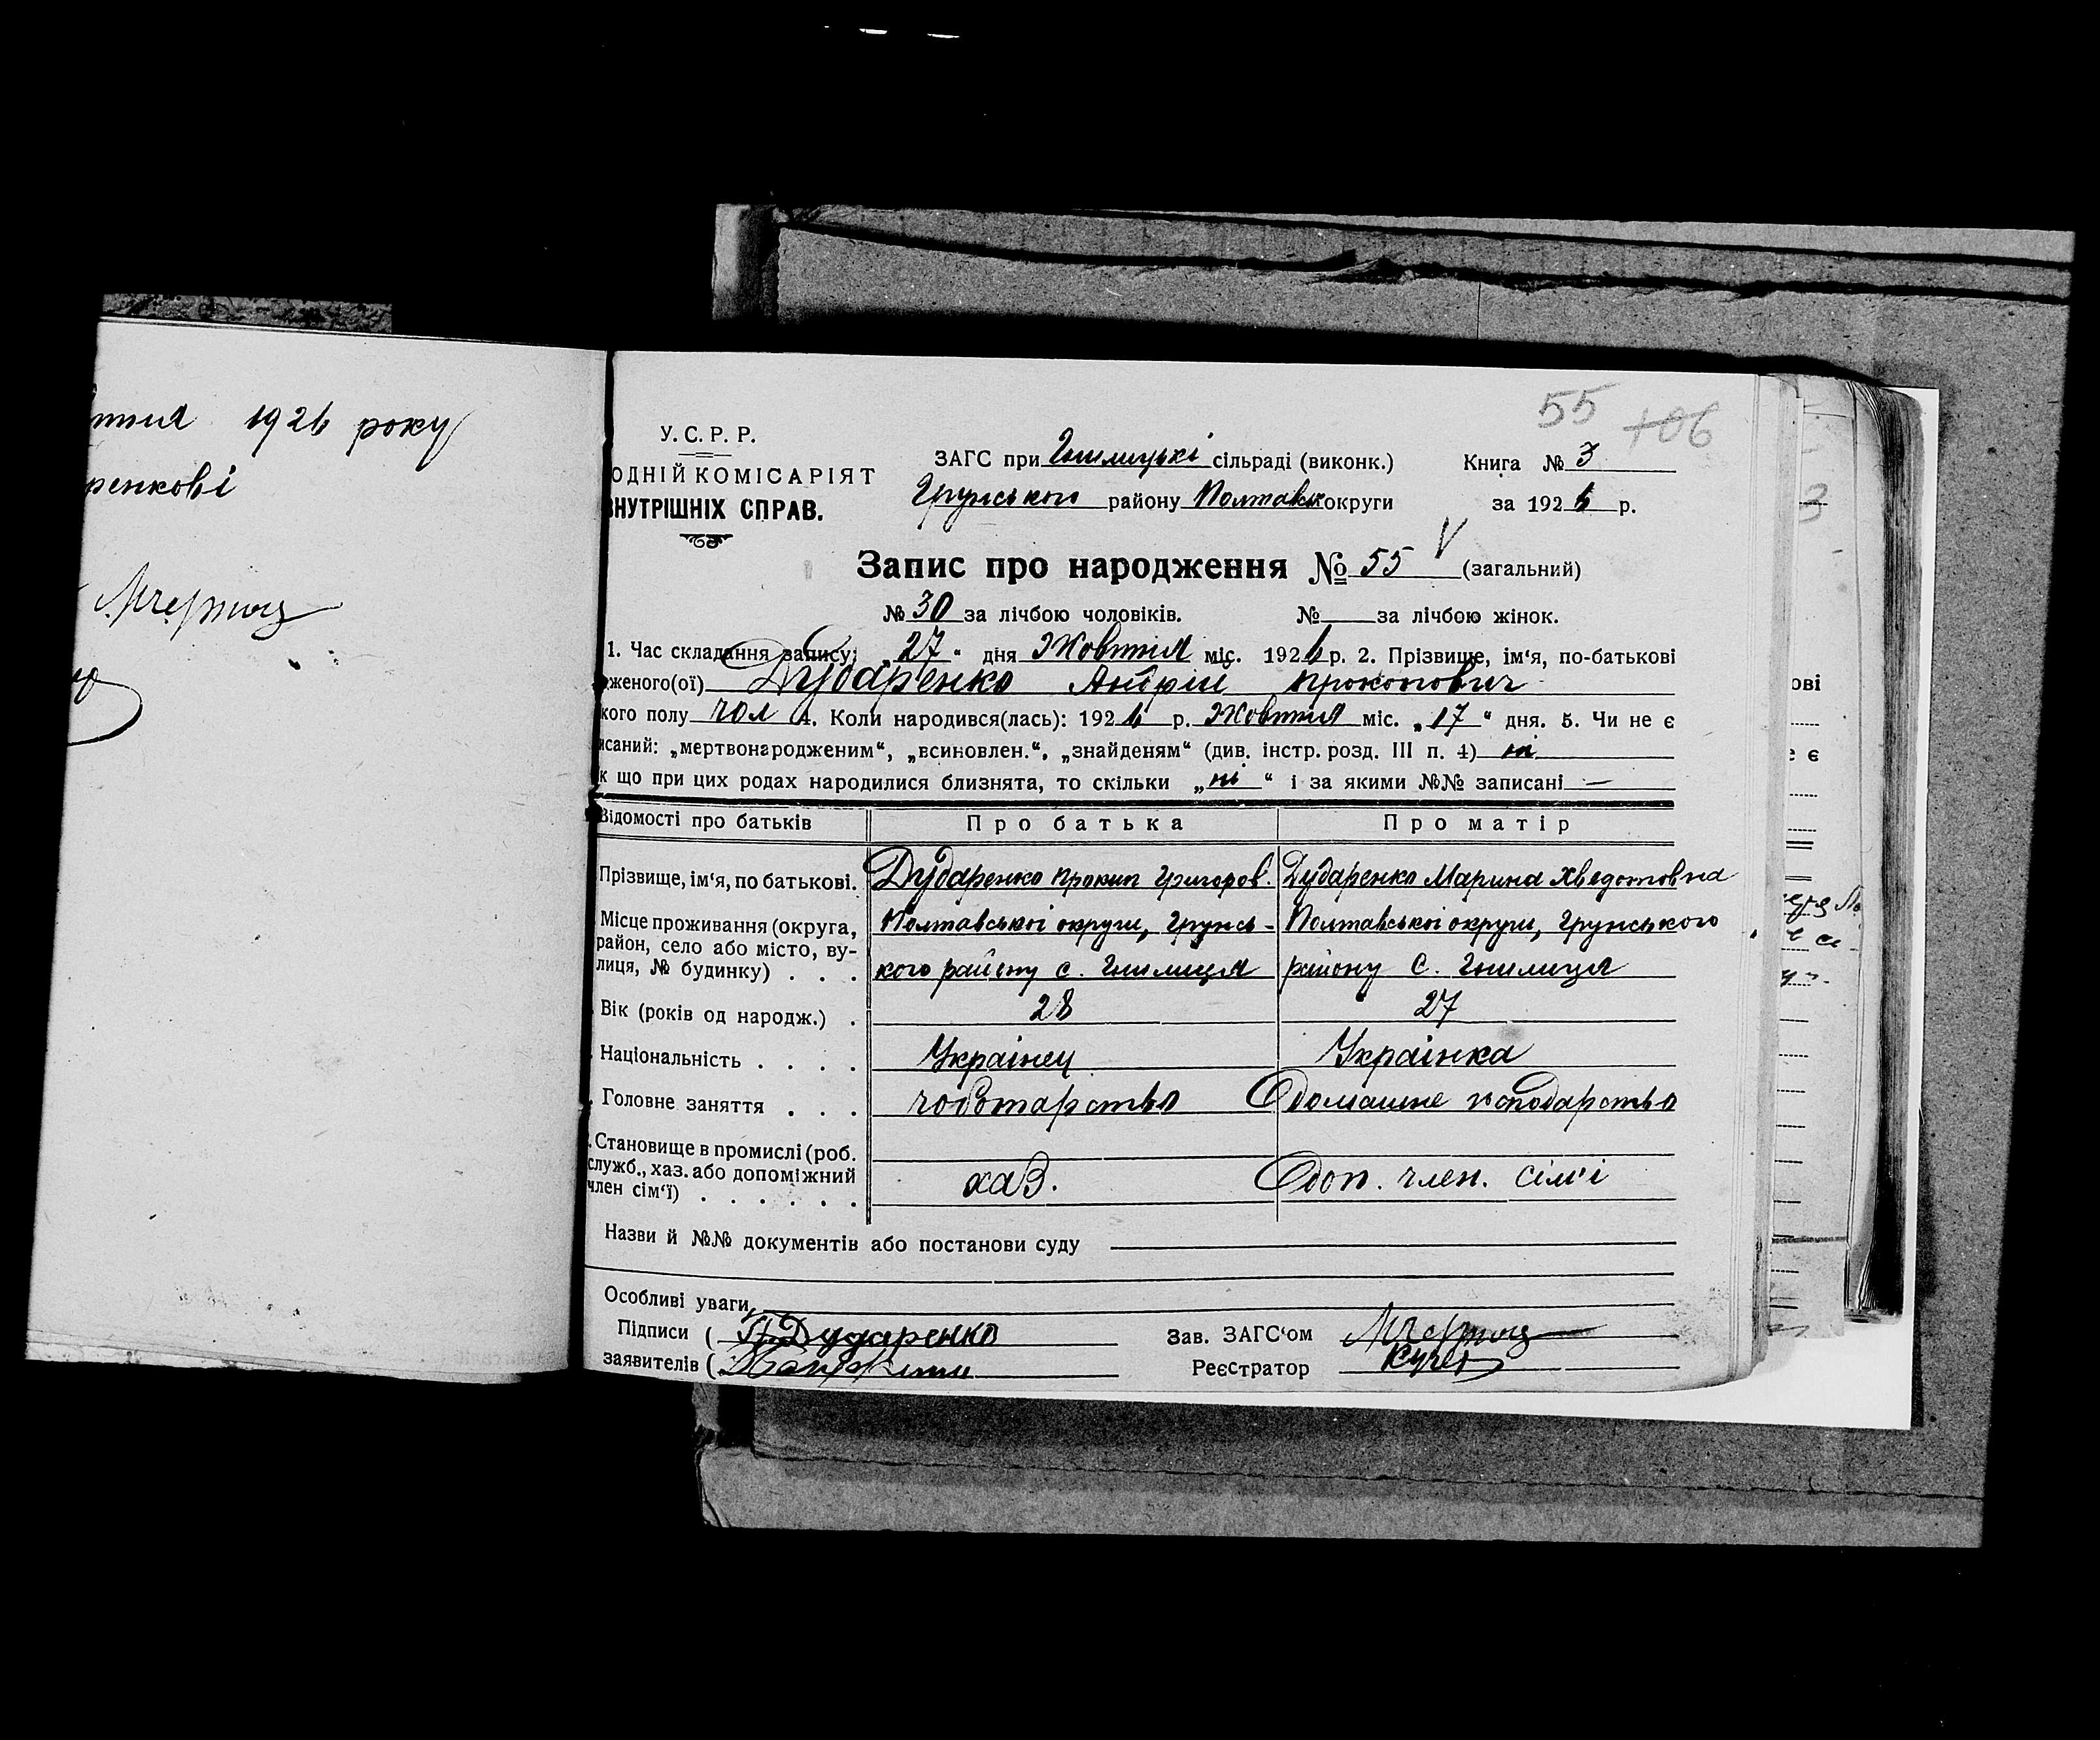 1926 року
ренкові
55 106
У.С.Р.Р.
ОДНІЙ КОМІСАРІЯТ
ВНУТРІШНІХ СПРАВ.
ЗАГС при Гнилицькі сільраді (виконк.)
Грунського району Полтавськ округи
Книга № 3
за 1926 р.
Запис про народження № 55 (загальний)
№ 30 за лічбою чоловіків. № за лічбою жінок.
1. Час складання запису: „27" дня Жовтня міс. 1926 р. 2. Прізвище, ім'я, по-батькові
женого(ої) Дударенко Андрій Прокопович
кого полу чол 4. Коли народився(лась): 1926 р. Жовтня міс. „17" дня. 5. Чи не є
исаний: „мертвонародженим", „всиновлен.", „знайденям" (див. інстр. розд. III п. 4) ні
к що при цих родах народилися близнята, то скільки „ні" і за якими №№ записані —
Відомості про батьків Про батька Про матір
Прізвище, ім'я, по батькові. Дударенко Прокип Григоров. Дударенко Марина Хведотовна
Місце проживання (округа, район, село або місто, ву-
лиця, № будинку) . . .
Полтавської округи, Грунсь-
кого району с. Гнилиця
Полтавської округи, Грунського
району с. Гнилиця
Вік (років од народж.) . 28 27
Національність . . . . Українец Українка
Головне заняття . . . чоботарство домашнє господарство
Становище в промислі (роб.
служб., хаз. або допоміжний
член сім'ї) . . . . . .
хаз. доп. член. сім'ї
Назви й №№ документів або постанови суду
Особливі уваги
Підписи ( П Дударенко
заявителів (
Зав. ЗАГС'ом
Реєстратор Кучер
ові
є